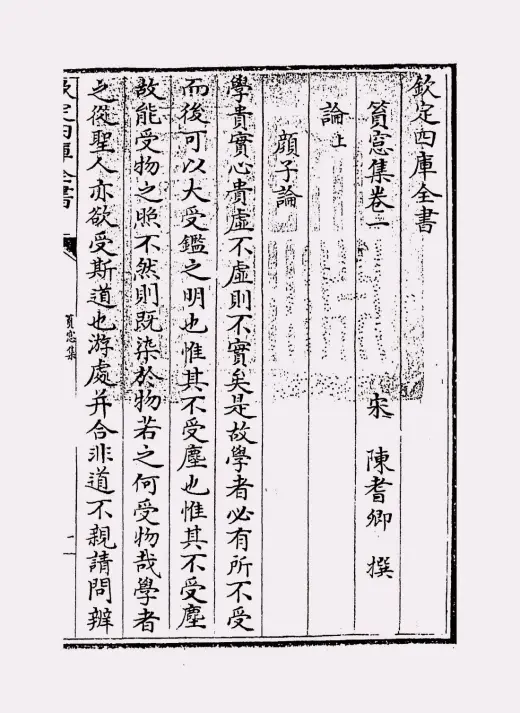 欽定四庫全書
篔窻集卷一
宋 陳耆卿 撰
論上
顔子論
學貴實心貴虛不虛則不實矣是故學者必有所不受
而後可以大受鑑之明也惟其不受塵也惟其不受塵
故能受物之照不然則既染於物若之何受物哉學者
之從聖人亦欲受斯道也游處并合非道不親請問辨
欽定四庫全書
篔窻集
一